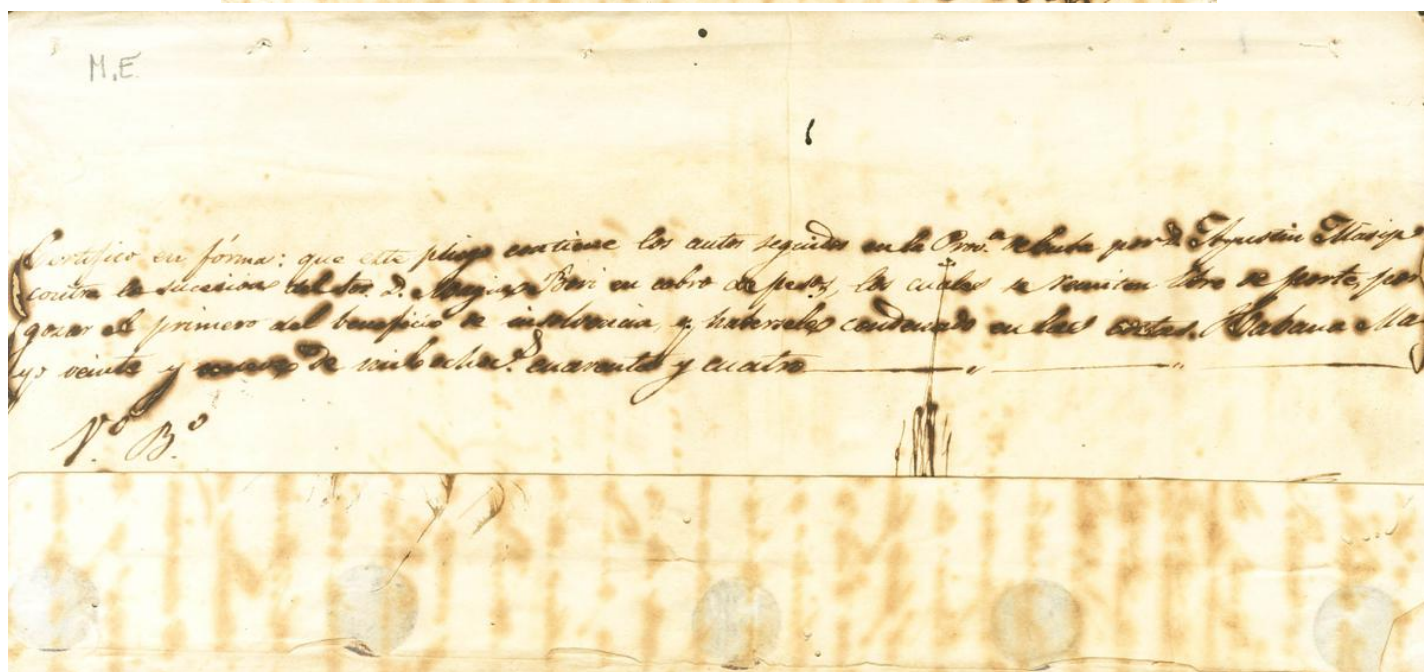 M.E.
Certifico en fórma: que este pliego contiene los autos seguidos en la Prov.ª de Cuba por D. Agustin Masip
contra la sucesion del D. en cobro de pesos, los cuales se remiten libre de porte, por
gozar el primero del beneficio de insolvencia, y haberseles condenado en las costas. Habana Ma-
yo veinte y nueve de mil ochoc.s cuarenta y cuatro
V.º B.º